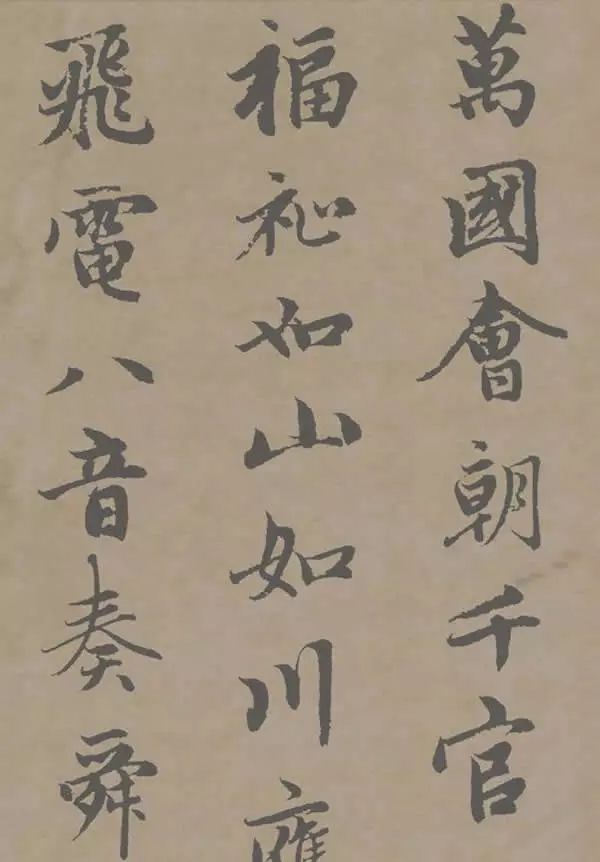 萬國會朝千官
福祉如山如川應
飛電八音奏舜